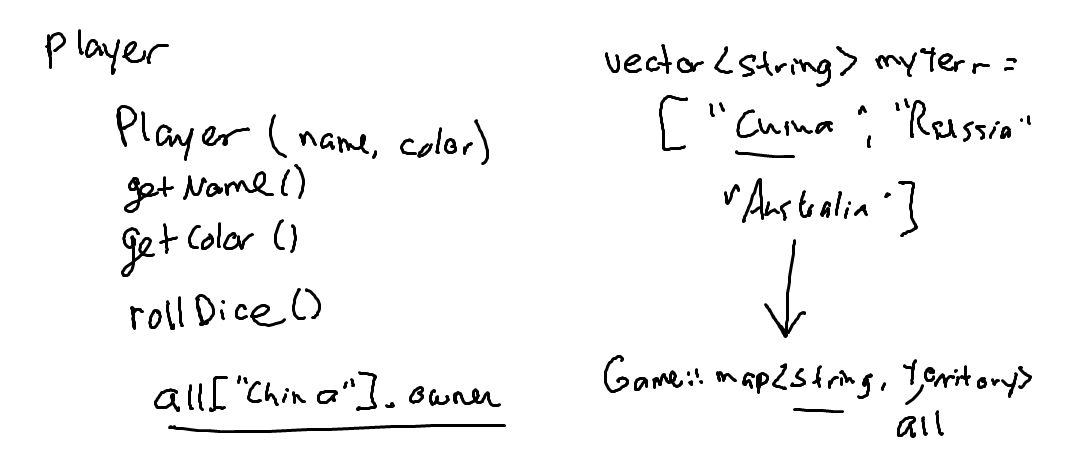 Player
Player (name, color)
getName()
getColor ()
rollDice()
all["China"]. owner
vector<string> myTerr =
["China", "Russia"
"Australia"]
Game:: map<string, territory>
all